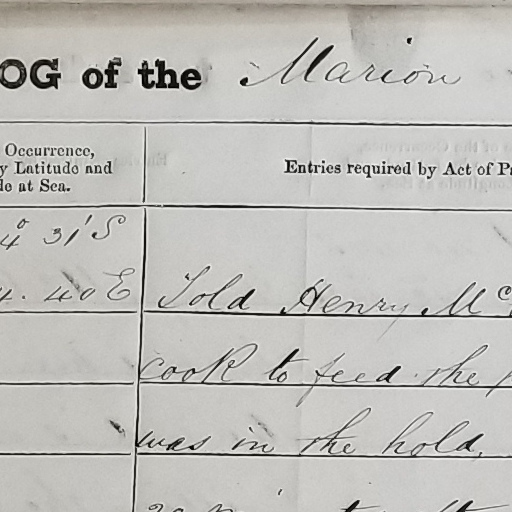 OG of the Marion
Occurrence,
y Latitude and
de at Sea.
Entries required by Act of Pa
4° 31' S
4. 40 E Told Henry Mc
cook to feed the p
was in the hold,